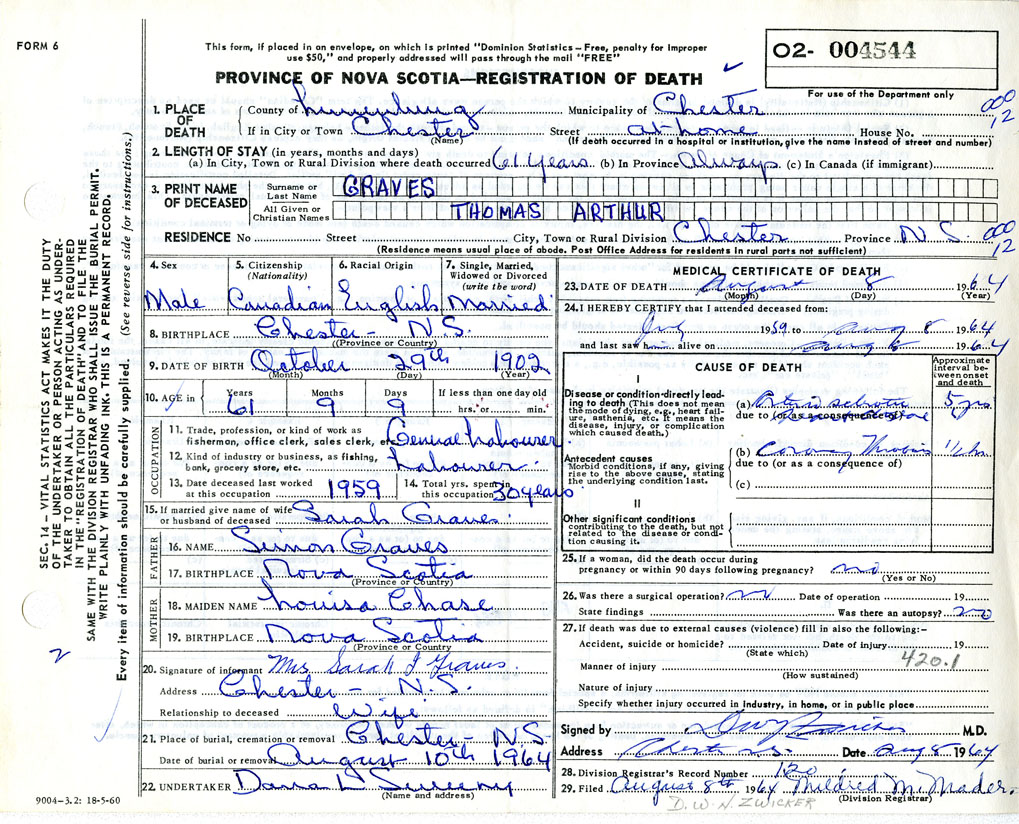 FORM 6
This form, if placed in an envelope, on which is printed "Dominion Statistics — Free, penalty for improper
use $50," and properly addressed will pass through the mail "FREE"
PROVINCE OF NOVA SCOTIA—REGISTRATION OF DEATH
02- 004544
For use of the Department only
1. PLACE OF DEATH County of Lunenburg Municipality of Chester 000 12
If in City or Town Chester Street at home House No.
(Name) (If death occurred in a hospital or institution, give the name instead of street and number)
2. LENGTH OF STAY (in years, months and days)
(a) In City, Town or Rural Division where death occurred 61 years (b) In Province Always (c) In Canada (if immigrant)
3. PRINT NAME OF DECEASED Surname or Last Name GRAVES
All Given or Christian Names THOMAS ARTHUR
RESIDENCE No Street City, Town or Rural Division Chester Province N.S. 000 12
(Residence means usual place of abode. Post Office Address for residents in rural parts not sufficient)
4. Sex Male
5. Citizenship (Nationality) Canadian
6. Racial Origin English
7. Single, Married, Widowed or Divorced (write the word) Married
8. BIRTHPLACE Chester - N.S.
(Province or Country)
9. DATE OF BIRTH October 29th 1902
(Month) (Day) (Year)
10. AGE in Years 61 Months 9 Days 9 If less than one day old hrs. or min.
OCCUPATION
11. Trade, profession, or kind of work as
fisherman, office clerk, sales clerk, etc. General Labourer
12. Kind of industry or business, as fishing,
bank, grocery store, etc. Labourer
13. Date deceased last worked at this occupation 1959
14. Total yrs. spent in this occupation 30 years
15. If married give name of wife or husband of deceased Sarah Graves
FATHER
16. NAME Simon Graves
17. BIRTHPLACE Nova Scotia
(Province or Country)
MOTHER
18. MAIDEN NAME Louisa Chase
19. BIRTHPLACE Nova Scotia
(Province or Country)
20. Signature of informant Mrs Sarah J Graves
Address Chester - N.S.
Relationship to deceased Wife
21. Place of burial, cremation or removal Chester - N.S.
Date of burial or removal August 10th 1964
22. UNDERTAKER Dana L Sweeny
(Name and address)
MEDICAL CERTIFICATE OF DEATH
23. DATE OF DEATH August 8 1964
(Month) (Day) (Year)
24. I HEREBY CERTIFY that I attended deceased from:
1959 to Aug 8 1964
and last saw h alive on Aug 1964
CAUSE OF DEATH
Approximate interval between onset and death
I
Disease or condition directly leading to death (This does not mean the mode of dying, e.g., heart failure, asthenia, etc. It means the disease, injury, or complication which caused death.)
(a) 5 yrs
due to (or as a consequence of)
Antecedent causes
Morbid conditions, if any, giving rise to the above cause, stating the underlying condition last.
(b) Coronary
due to (or as a consequence of)
(c)
II
Other significant conditions
contributing to the death, but not related to the disease or condition causing it.
25. If a woman, did the death occur during
pregnancy or within 90 days following pregnancy? no
(Yes or No)
26. Was there a surgical operation? no Date of operation 19
State findings Was there an autopsy? no
27. If death was due to external causes (violence) fill in also the following:—
Accident, suicide or homicide? Date of injury 19
(State which) 420.1
Manner of injury
(How sustained)
Nature of injury
Specify whether injury occurred in industry, in home, or in public place
Signed by M.D.
Address Chester N.S. Date Aug 8 1964
28. Division Registrar's Record Number 120
29. Filed August 8th 1964 Mildred M. Mader.
(Division Registrar)
D.W.N. ZWICKER
SEC. 14 — VITAL STATISTICS ACT MAKES IT THE DUTY
OF THE UNDERTAKER OR PERSON ACTING AS UNDER-
TAKER TO OBTAIN ALL THE PARTICULARS REQUIRED
IN THE "REGISTRATION OF DEATH" AND TO FILE THE
SAME WITH THE DIVISION REGISTRAR WHO SHALL ISSUE THE BURIAL PERMIT.
WRITE PLAINLY WITH UNFADING INK. THIS IS A PERMANENT RECORD.
Every item of information should be carefully supplied. (See reverse side for instructions.)
9004-3.2: 18-5-60